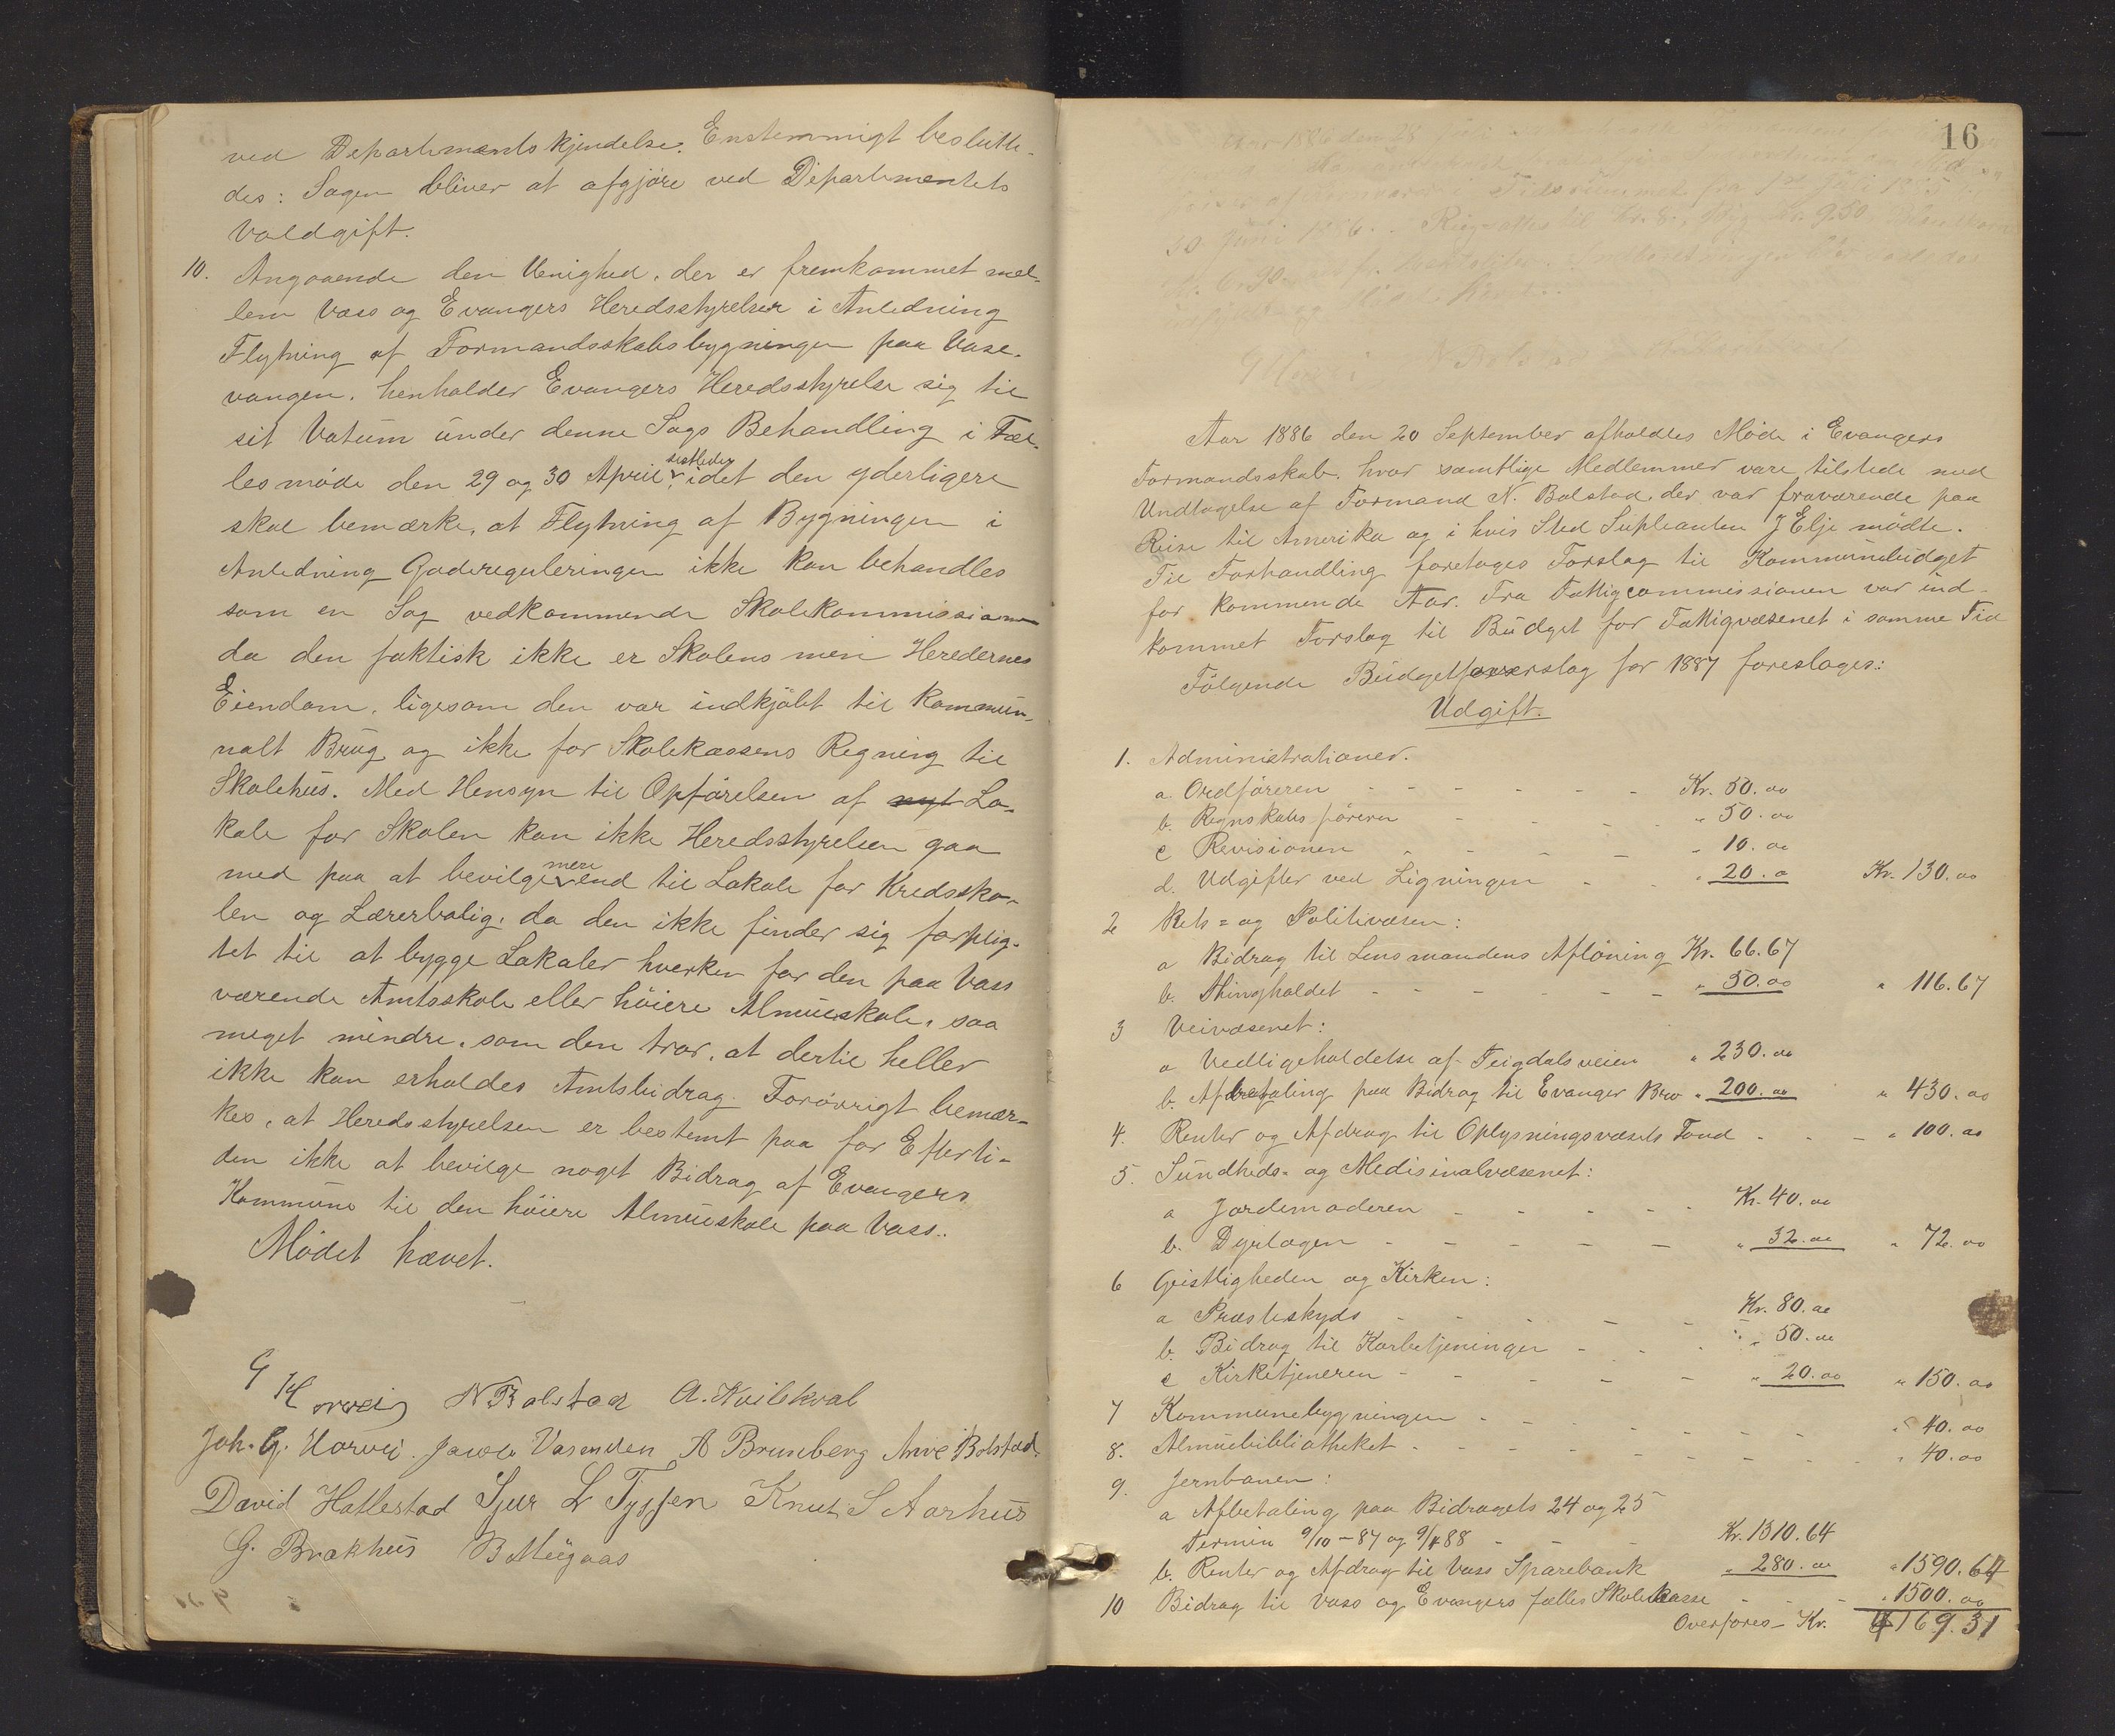 ved Departmentskjendelse. Enstemmigt beslutte-
des: Sagen bliver at afgjøre ved Departmentets
Voldgift.
10. Angaaende den Uenighed, der er fremkommet mel-
lem Vass og Evangers Heredsstyrelser i Anledning
Flytning af Formandsskabsbygningen paa Vasse-
vangen, henholder Evangers Heredsstyrelse sig til
sit Votum under denne Sags Behandling i Fæl-
lesmøde den 29 og 30 April sistleden, idet den yderligere
skal bemærke, at Flytning af Bygningen i
Anledning Gadereguleringen ikke kan behandles
som en Sag vedkommende Skolekommissionen
da den faktisk ikke er Skolens men Heredernes
Eiendom, ligesom den var indkjøbt til kommun-
nalt Brug og ikke for Skolekassens Regning til
Skolehus. Med Hensyn til Opførelsen af nyt Lo-
kale for Skolen kan ikke Heredsstyrelsen gaa
med paa at bevilge mere end til Lokale for Kredssko-
len og Lærerbolig, da den ikke finder sig forplig-
tet til at bygge Lokaler hverken for den paa Vass
værende Amtsskole eller høiere Almueskole, saa
meget mindre, som den tror, at dertil heller
ikke kan erholdes Amtsbidrag. Forøvrigt bemær-
kes, at Heredsstyrelsen er bestemt paa for Efterti-
den ikke at bevilge noget Bidrag af Evangers
Kommune til den høiere Almueskole paa Vass..
Mødet hævet.
G Horvei N Bolstad A. Kvilekval
Joh. G. Horvei. Jacob Vasenden A Brunberg Arne Bolstad
David Hallestad Sjur L Tyssen Knut S Aarhus
G. Brækhus B Mügaas
16
Aar 1886 den 20 September afholdtes Møde i Evangers
Formandsskab, hvor samtlige Medlemmer vare tilstede med
Undtagelse af Formand N. Bolstad, der var fraværende paa
Reise til Amerika og i hvis Sted Supleanten J Elje mødte.
Til Forhandling foretoges Forslag til Kommunebudget
for kommende Aar. Fra Fattigcommissionen var ind-
kommet Forslag til Budget for Fattigvæsenet i samme Tid
Følgende Budgetforslag for 1887 foreslages:
Udgift.
1. Administrationer.
a. Ordføreren - - - - - - Kr. 50.00
b. Regnskabsføreren - - - - " 50.00
c Revisionen - - - - - " 10.00
d. Udgifter ved Ligningen - - " 20.00 Kr. 130.00
2 Rets- og Politivæsen:
a Bidrag til Lensmandens Aflöning Kr. 66.67
b. Thingholdet - - - - - - " 50.00 " 116.67
3 Veivæsenet:
a Vedligeholdelse af Teigdalsveien " 230.00
b. Afbetaling paa Bidrag til Evanger Bro " 200.00 " 430.00
4. Renter og Afdrag til Oplysningsvæsets Fond - - - " 100.00
5. Sundheds- og Medisinalvæsenet:
a Jordemoderen - - - - - Kr. 40.00
b. Dyrlægen - - - - - " 32.00 " 72.00
6 Geistligheden og Kirken:
a Præsteskyds - - - - - Kr. 80.00
b. Bidrag til Korbetjeninger - - - " 50.00
c Kirketjeneren - - - - - " 20.00 " 150.00
7 Kommunebygningen - - - - - - - " 40.00
8. Almuebibliotheket - - - - - - - " 40.00
9. Jernbanen:
a Afbetaling paa Bidragets 24 og 25
Termin 9/10-87 og 9/4 88 - - - Kr. 1310.64
b. Renter og Afdrag til Vass Sparebank " 280.00 " 1590.64
10 Bidrag til Vass og Evangers fælles Skolekasse - - - " 1500.00
Overføres - Kr. 4169.31